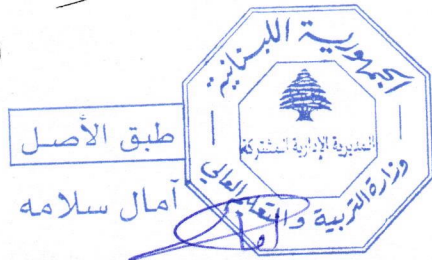 الجمهورية اللبنانية
المديرية الإدارية المشتركة
وزارة التربية والتعليم العالي
طبق الأصل
آمال سلامه